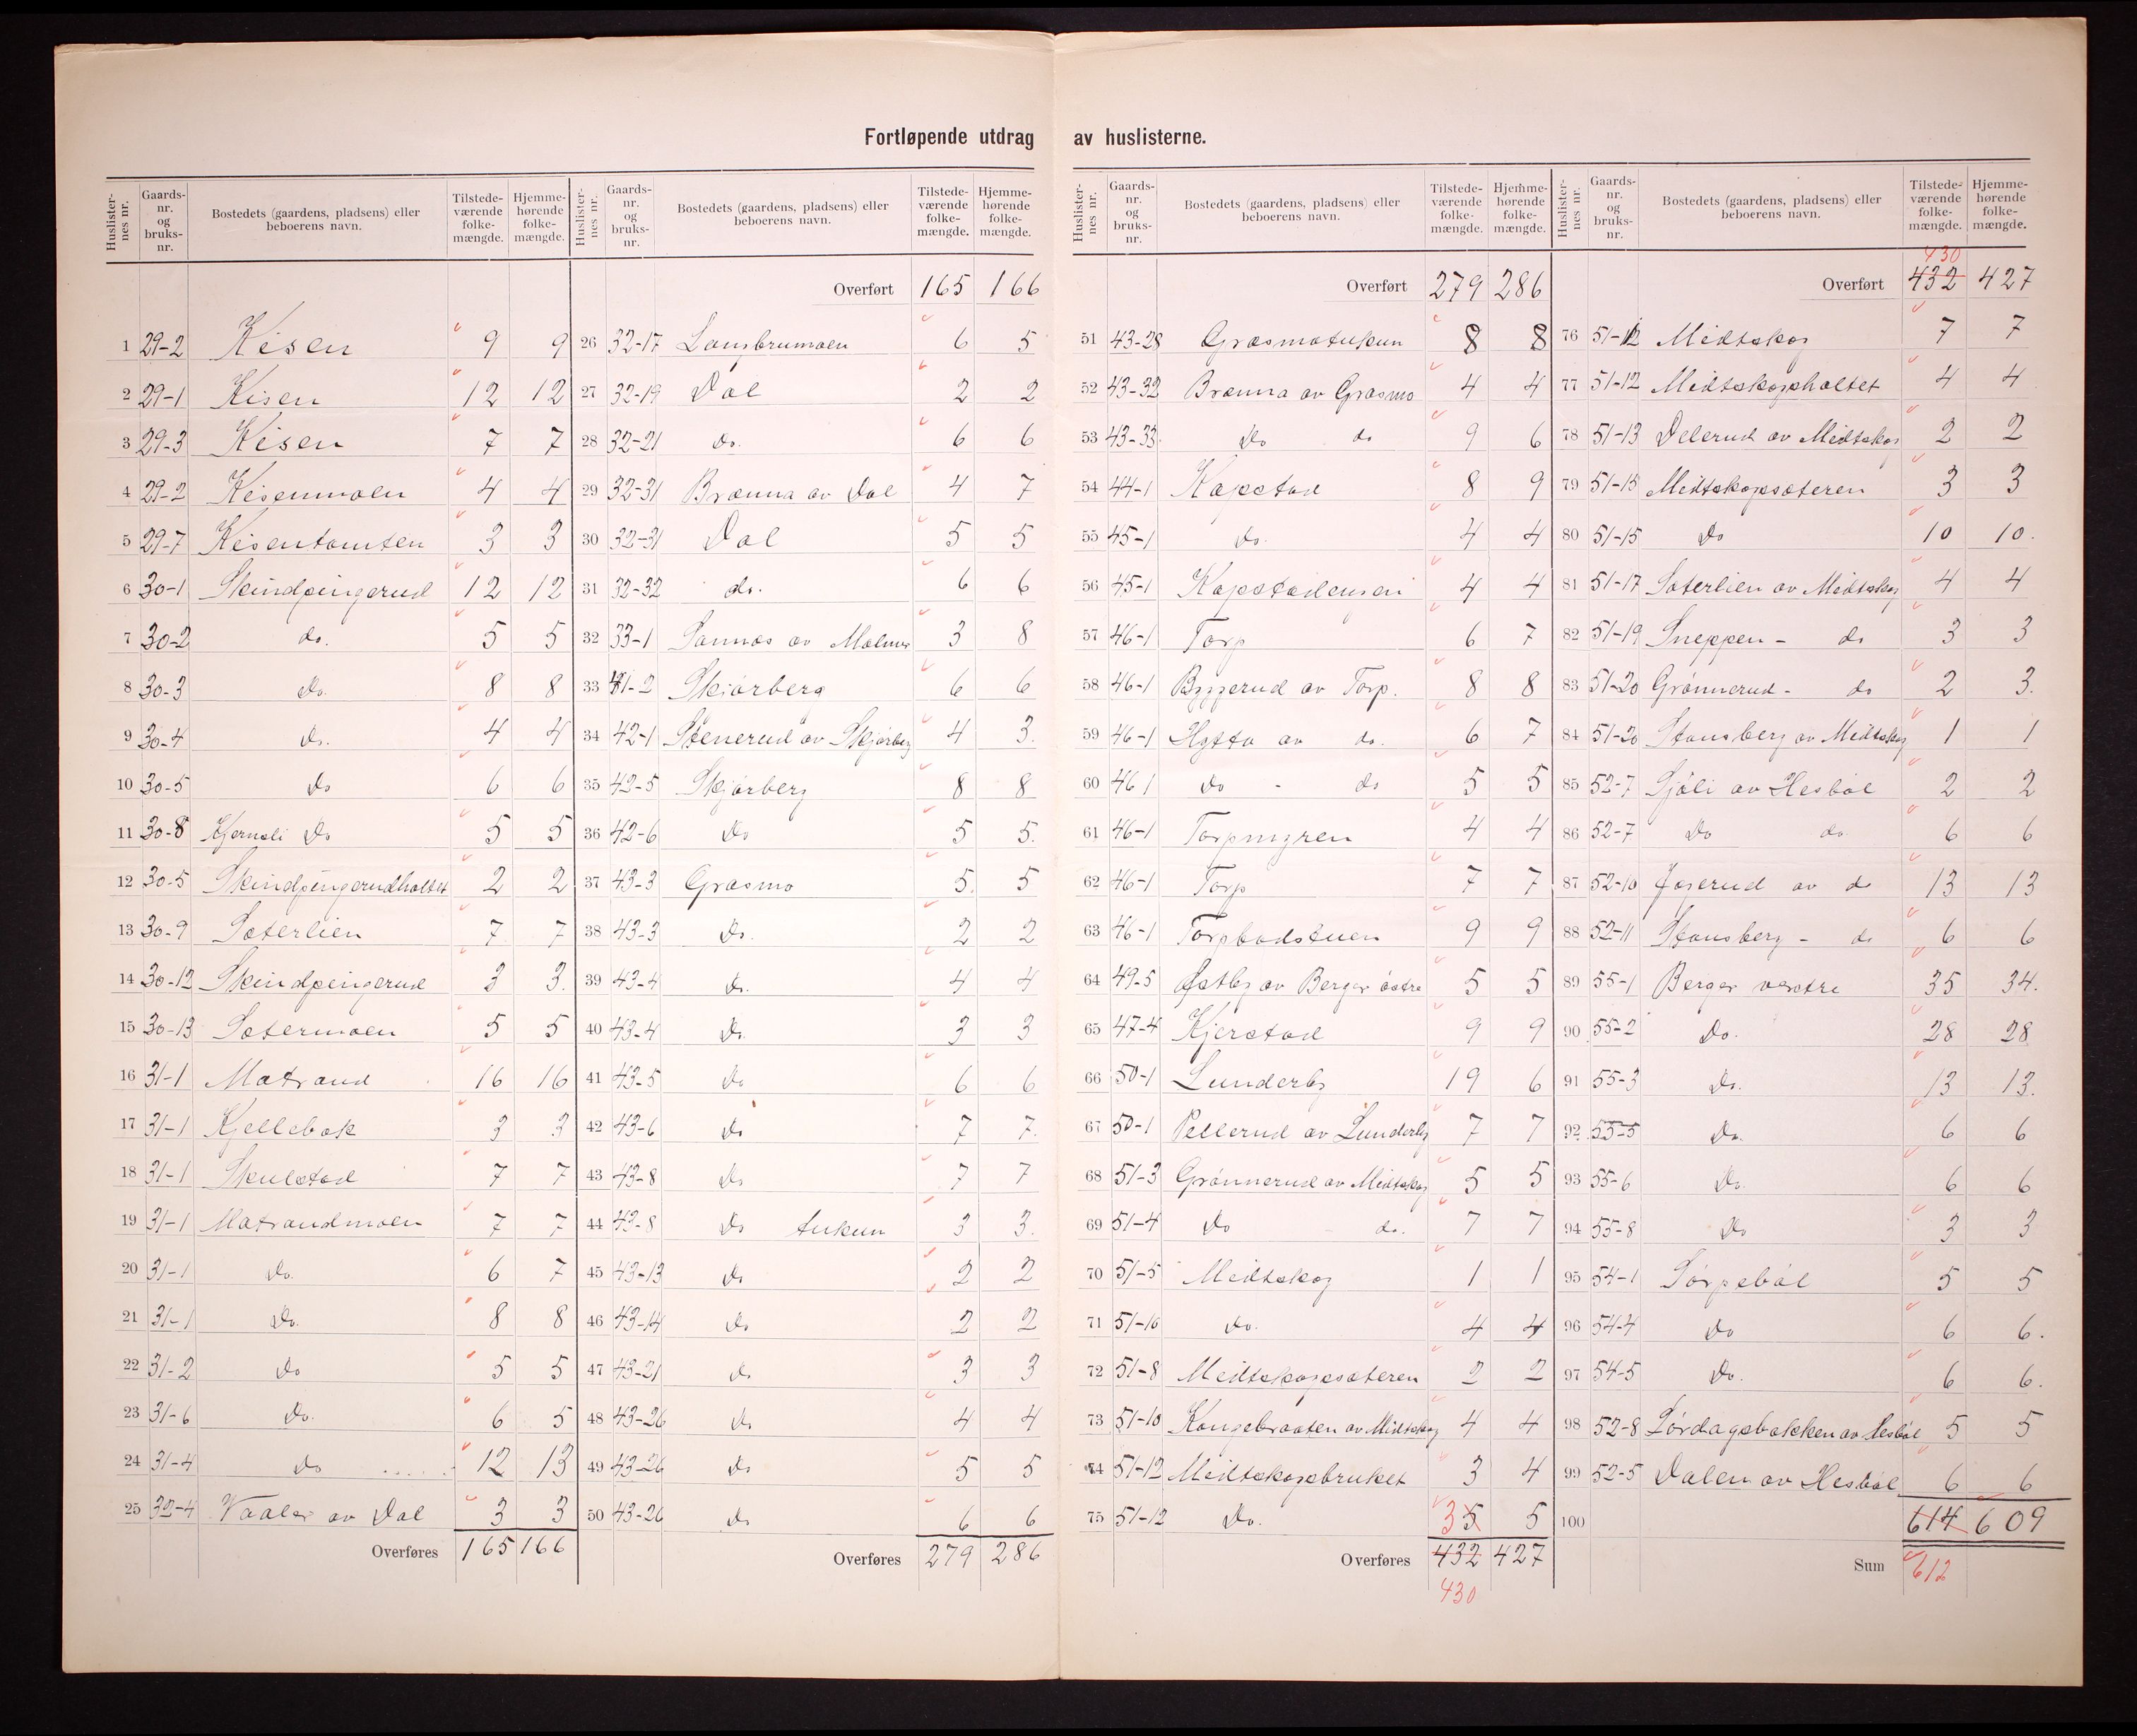 Fortløpende utdrag av huslisterne.
Huslister-nes nr. Gaards-nr. og bruks-nr. Bostedets (gaardens, pladsens) eller beboerens navn. Tilstede-værende folke-mængde. Hjemme-hørende folke-mængde.
1 29-2 Kisen 9 9
2 29-1 Kisen 12 12
3 29-3 Kisen 7 7
4 29-2 Kisenmoen 4 4
5 29-7 Kisentomten 3 3
6 30-1 Skindpungerud 12 12
7 30-2 do. 5 5
8 30-3 Do. 8 8
9 30-4 Do. 4 4
10 30-5 Do 6 6
11 30-8 Kjernsli Do 5 5
12 30-5 Skindpungerudholtet 2 2
13 30-9 Sæterlien 7 7
14 30-12 Skindpungerud 3 3.
15 30-13 Sætermoen 5 5
16 31-1 Matrand 16 16
17 31-1 Kjellebæk 3 3
18 31-1 Skulstad 7 7
19 31-1 Matrandmoen 7 7
20 31-1 Do. 6 7
21 31-1 Do. 8 8
22 31-2 Do 5 5
23 31-6 Do. 6 5
24 31-4 Do 12 13
25 32-4 Vaaler av Dal 3 3
Overføres 165 166
Huslister-nes nr. Gaards-nr. og bruks-nr. Bostedets (gaardens, pladsens) eller beboerens navn. Tilstede-værende folke-mængde. Hjemme-hørende folke-mængde.
Overført 165 166
26 32-17 Langbrumoen 6 5
27 32-19 Dal 2 2
28 32-21 do. 6 6
29 32-31 Brænna av Dal 4 7
30 32-31 Dal 5 5
31 32-32 do. 6 6
32 33-1 Sannæs av Malmer 3 8
33 41-2 Skjárberg 6 6
34 42-1 Stenerud av Skjárberg 4 3.
35 42-5 Skjárberg 8 8
36 42-6 Do 5 5.
37 43-3 Græsmo 5. 5
38 43-3 Do. 2 2
39 43-4 Do. 4 4
40 43-4 Do. 3 3
41 43-5 Do 6 6
42 43-6 Do 7 7.
43 43-8 Do 7 7
44 43-8 Do tukun 3 3.
45 43-13 Do 2 2
46 43-14 Do 2 2
47 43-21 Do 3 3
48 43-26 Do 4 4
49 43-26 Do 5 5
50 43-26 Do 6 6
Overføres 279 286
Huslister-nes nr. Gaards-nr. og bruks-nr. Bostedets (gaardens, pladsens) eller beboerens navn. Tilstede-værende folke-mængde. Hjemme-hørende folke-mængde.
Overført 279 286
51 43-28 Græsmotukun 8 8
52 43-32 Brænna av Græsmo 4 4
53 43-33. Do do 9 6
54 44-1 Kapstad 8 9
55 45-1 Do. 4 4
56 45-1 Kapstadengen 4 4
57 46-1 Torp 6 7
58 46-1 Byggerud av Torp. 8 8
59 46-1 Hytta av do. 6 7
60 46 1 Do - do 5 5
61 46-1 Torpmyren 4 4
62 46-1 Torp 7 7
63 46-1 Torpbadstuen 9 9
64 49-5 Østby av Berger östre 5 5
65 47-4 Kjerstad 9 9
66 50-1 Lunderby 19 6
67 50-1 Pellerud av Lunderby 7 7
68 51-3 Grönnerud av Midtskog 5 5
69 51-4 Do - do. 7 7
70 51-5 Midtskog 1 1
71 51-16 Do. 4 4
72 51-8 Midtskogsæteren 2 2
73 51-10 Kongebraaten av Midtskog 4 4
74 51-12 Midtskogsbruket 3 4
75 51-12 Do. 3 5 5
Overføres 432 427
430
Huslister-nes nr. Gaards-nr. og bruks-nr. Bostedets (gaardens, pladsens) eller beboerens navn. Tilstede-værende folke-mængde. Hjemme-hørende folke-mængde.
430
Overført 432 427
76 51-12 Midtskog 7 7
77 51-12 Midtskogsholtet 4 4
78 51-13 Delerud av Midtskog 2 2
79 51-15 Midtskogsæteren 3 3
80 51-15 Do 10 10.
81 51-17 Sæterlien av Midtskog 4 4
82 51-19 Sneppen - do 3 3
83 51-20 Grönnerud - do 2 3.
84 51-20 Stensberg av Midtskog 1 1
85 52-7 Sjöli av Hesböl 2 2
86 52-7 Do do 6 6
87 52-10 Joserud av do 13 13
88 52-11 Stensberg - do 6 6
89 55-1 Berger vestre 35 34.
90 55-2 Do. 28 28
91 55-3 Do. 13 13.
92 55-5 Do. 6 6
93 55-6 Do. 6 6
94 55-8 Do 3 3
95 54-1 Sörpeböl 5 5
96 54-4 Do 6 6.
97 54-5 Do. 6 6.
98 52-8 Lördagsbakken av Hesböl 5 5
99 52-5 Dalen av Hesböl 6 6
100 614 609
Sum 612